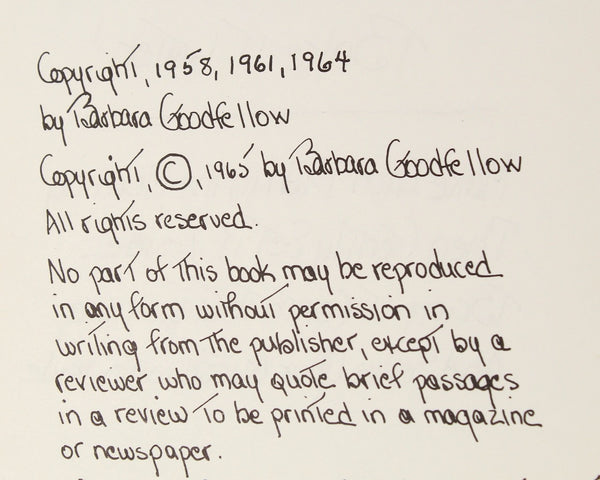 Copyright, 1958, 1961, 1964
by Barbara Goodfellow
Copyright, ©, 1965 by Barbara Goodfellow
All rights reserved.
No part of this book may be reproduced
in any form without permission in
writing from the publisher, except by a
reviewer who may quote brief passages
in a review to be printed in a magazine
or newspaper.